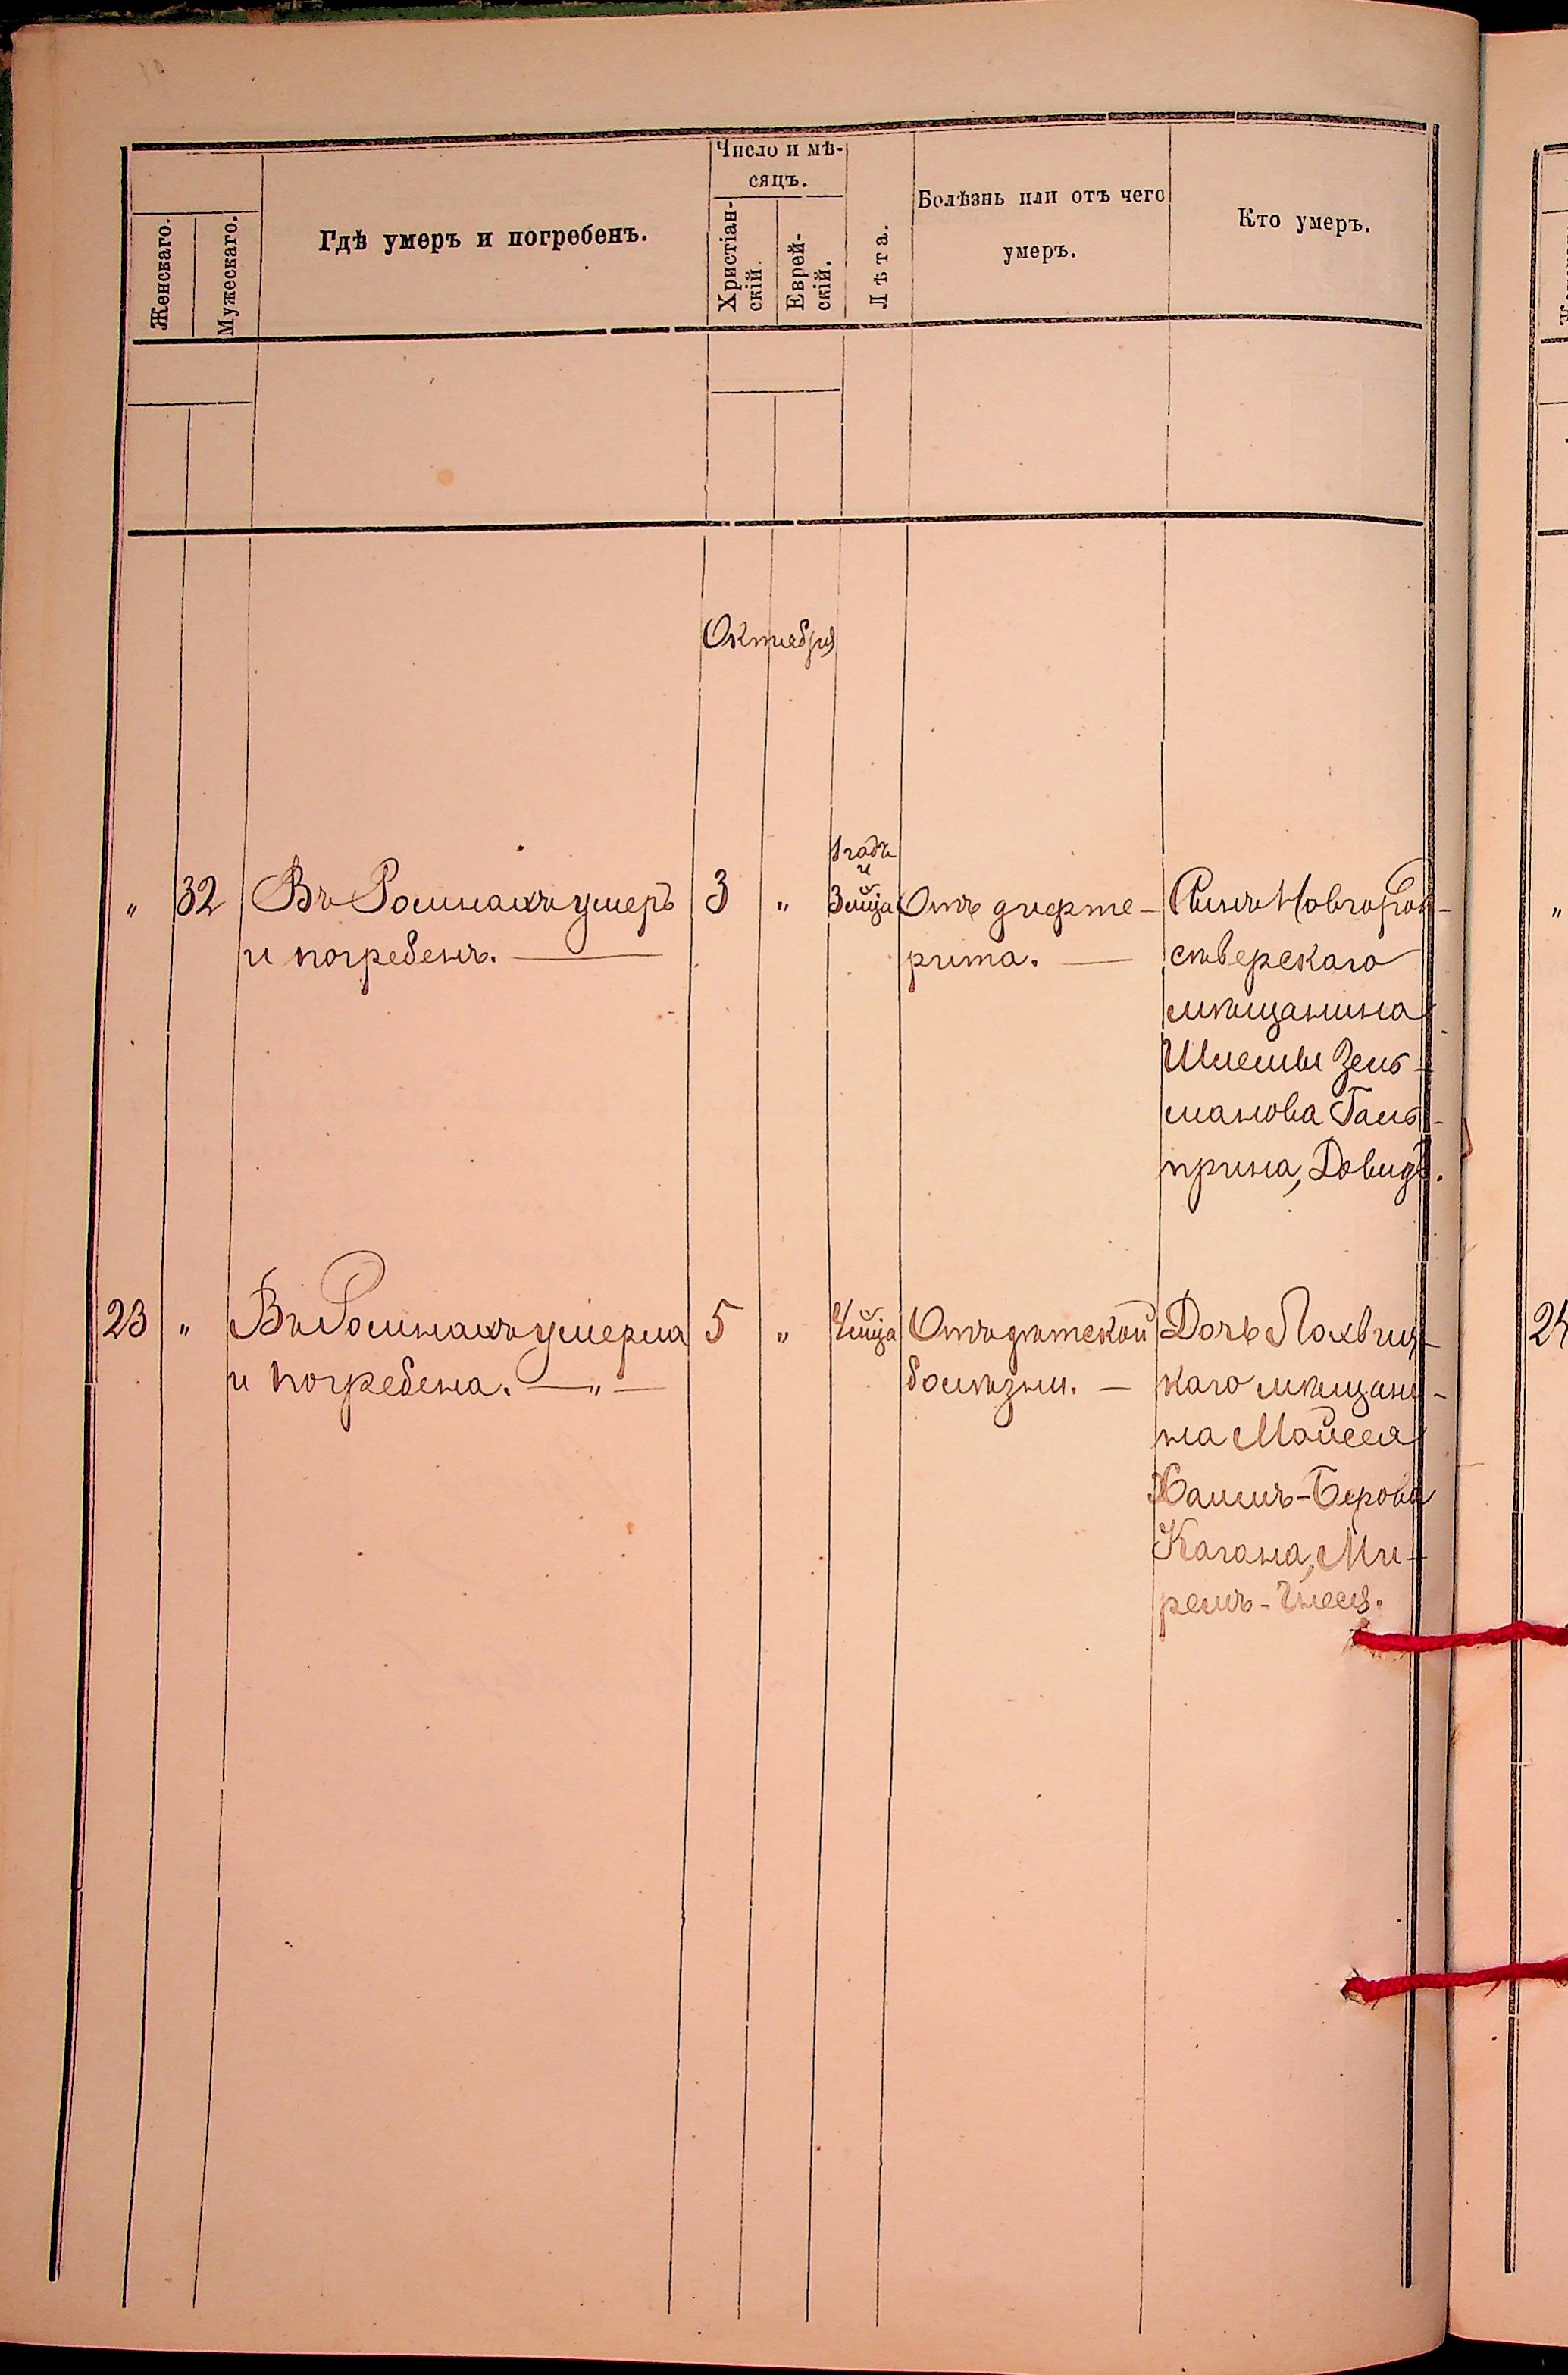 Женскаго.
Мужескаго.
Гдѣ умеръ и погребенъ.
Число и мѣ-
сяцъ.
Христіан-
скій.
Еврей-
скій.
Лѣта.
Болѣзнь или отъ чего
умеръ.
Кто умеръ.
Октября
"
32
Въ Ромнахъ умеръ
и погребенъ. —
3
"
1 годъ
и
3 м-ца
Отъ дифте-
рита. —
Сынъ Новгород-
сѣверскаго
мѣщанина
Шлемы Зель-
манова Галь-
прина, Довидъ.
23
"
Въ Ромнахъ умерла
и погребена. — " —
5
"
4 м-ца
Отъ дѣтской
болѣзни. —
Дочь Лохвиц-
каго мѣщани-
на Мойсея
Хаимъ-Берова
Кагана, Ми-
ремъ-Гнеся.
"
24